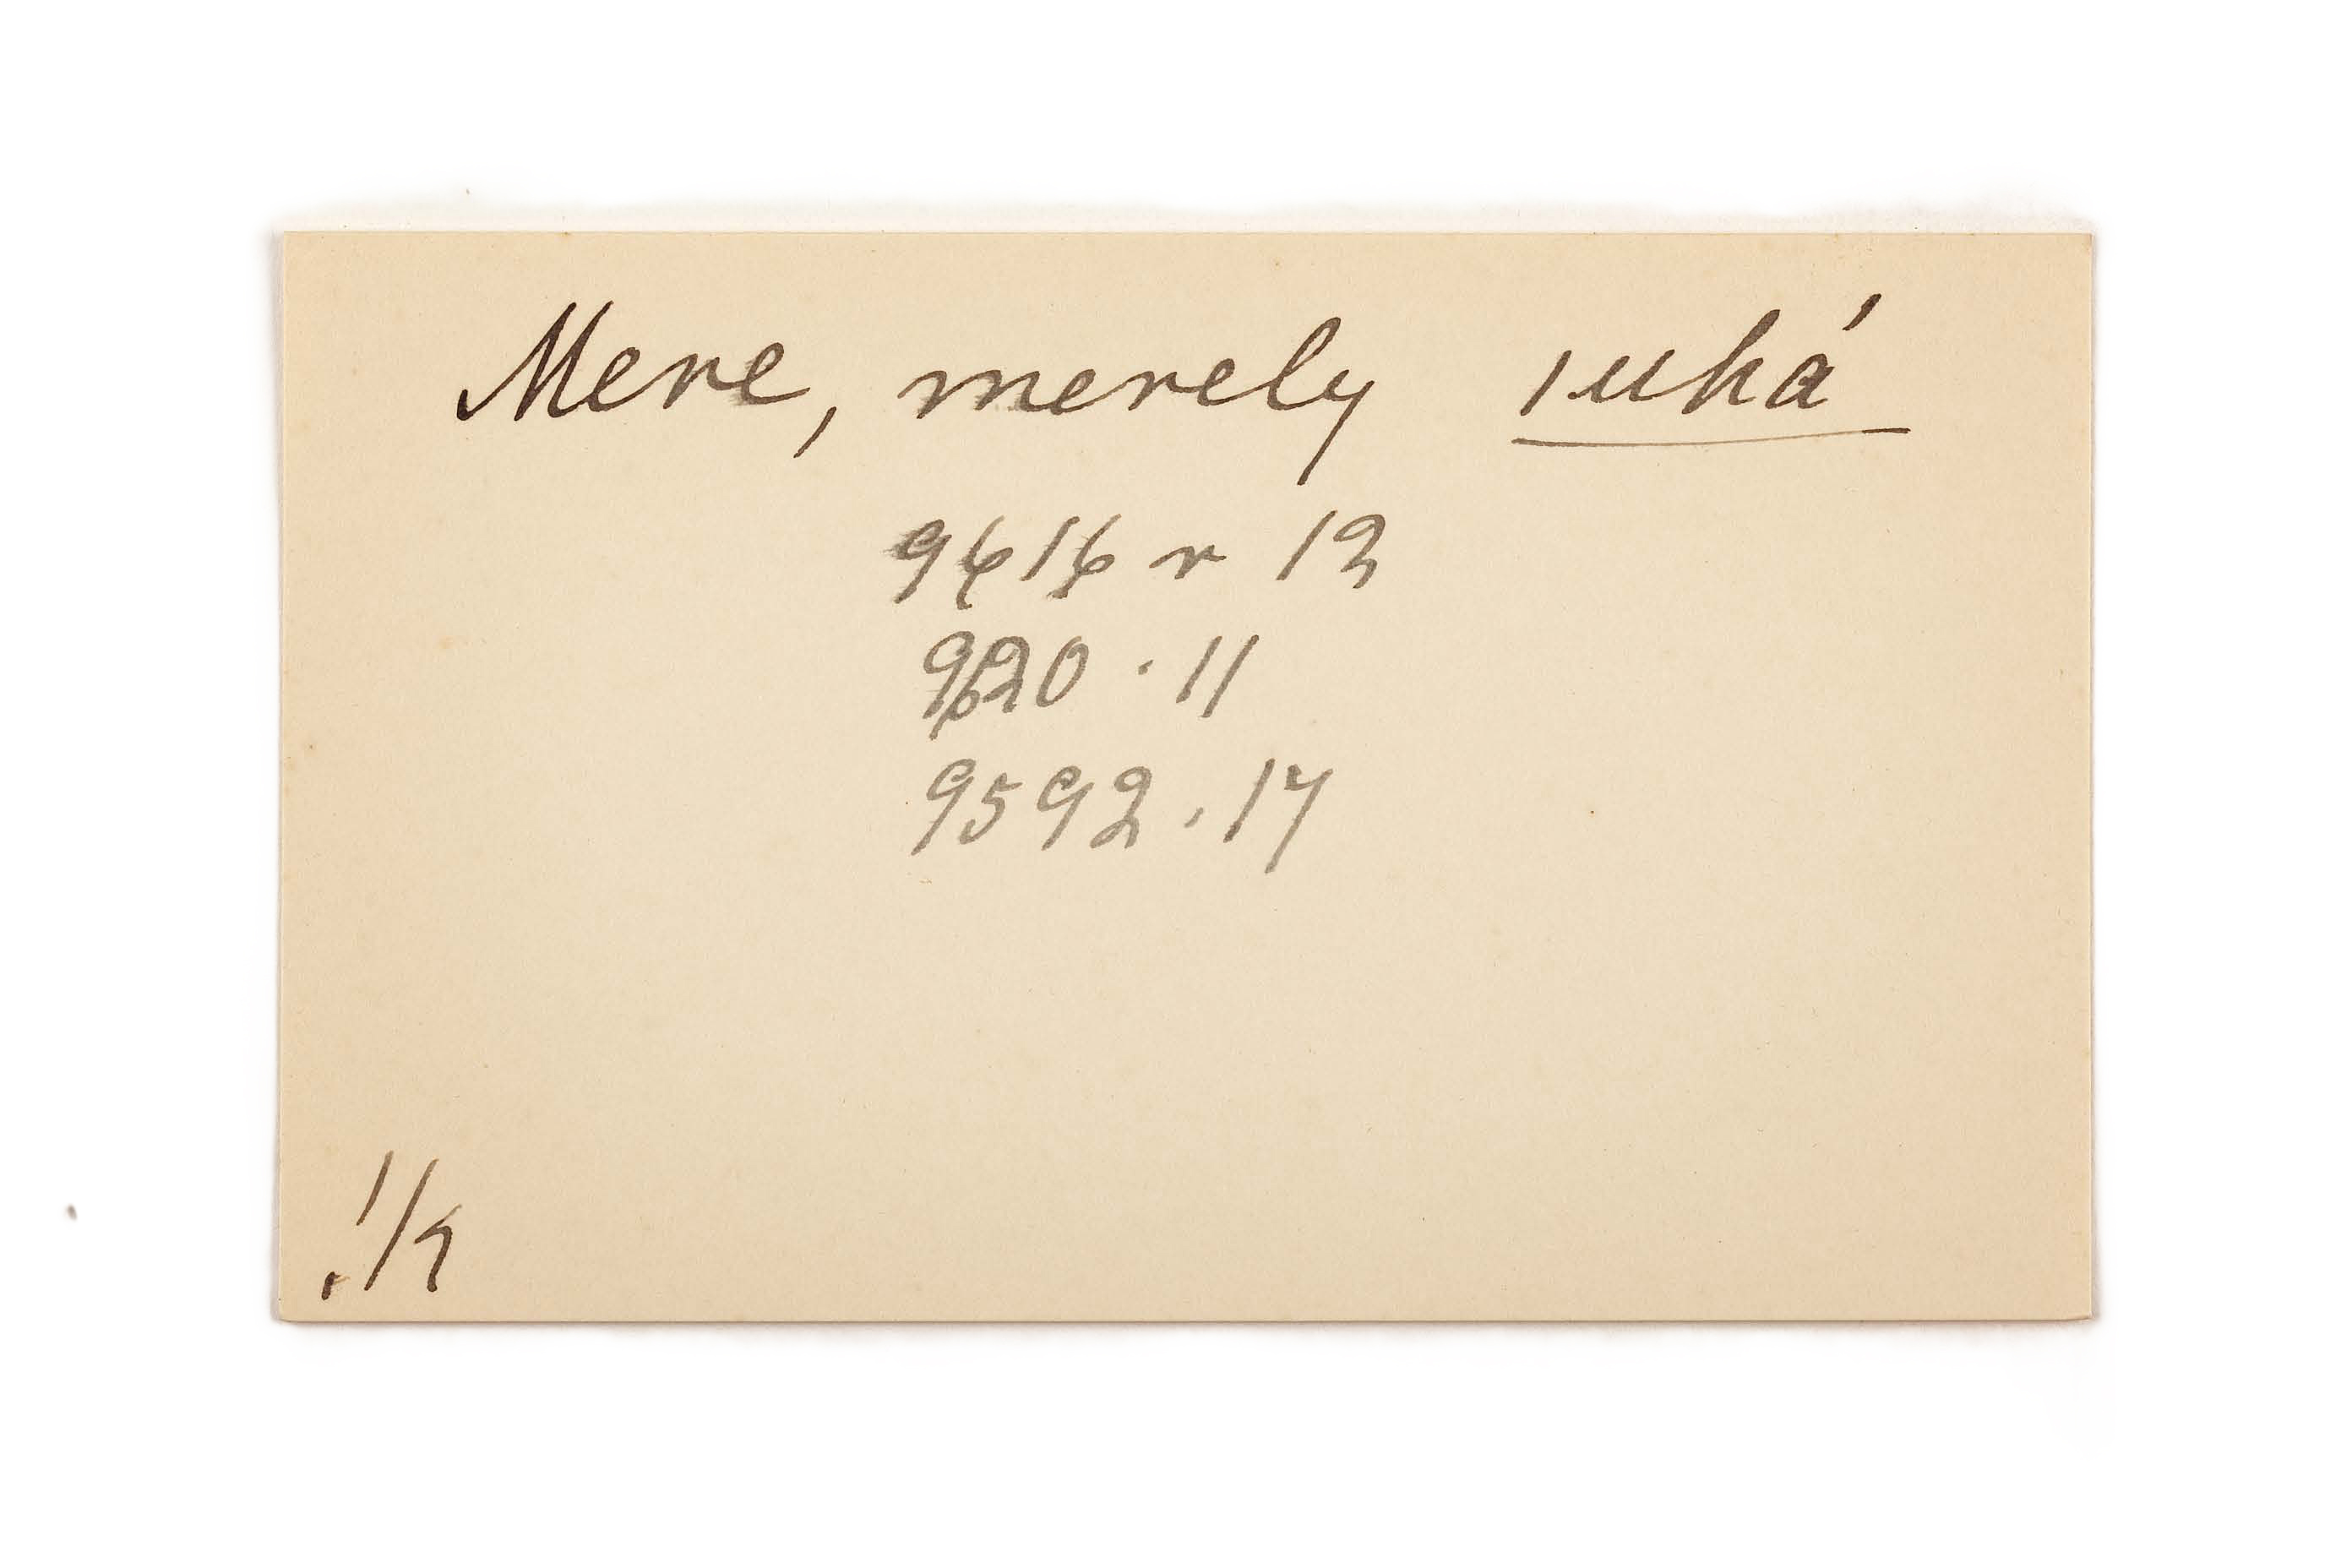 Mere, merely ıuká
9616 r 12
9620 . 11
9592 . 14